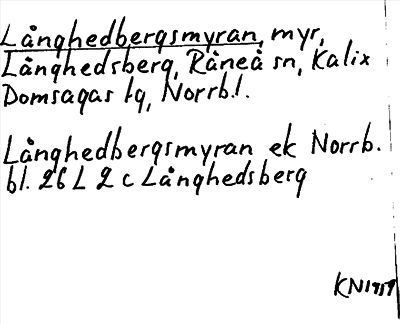 Långhedbergsmyran, myr,
Långhedsberg, Råneå sn, Kalix
Domsagas tg, Norrb.l.
Långhedbergsmyran ek Norrb.
bl. 26 L 2 c Långhedsberg
KN1959